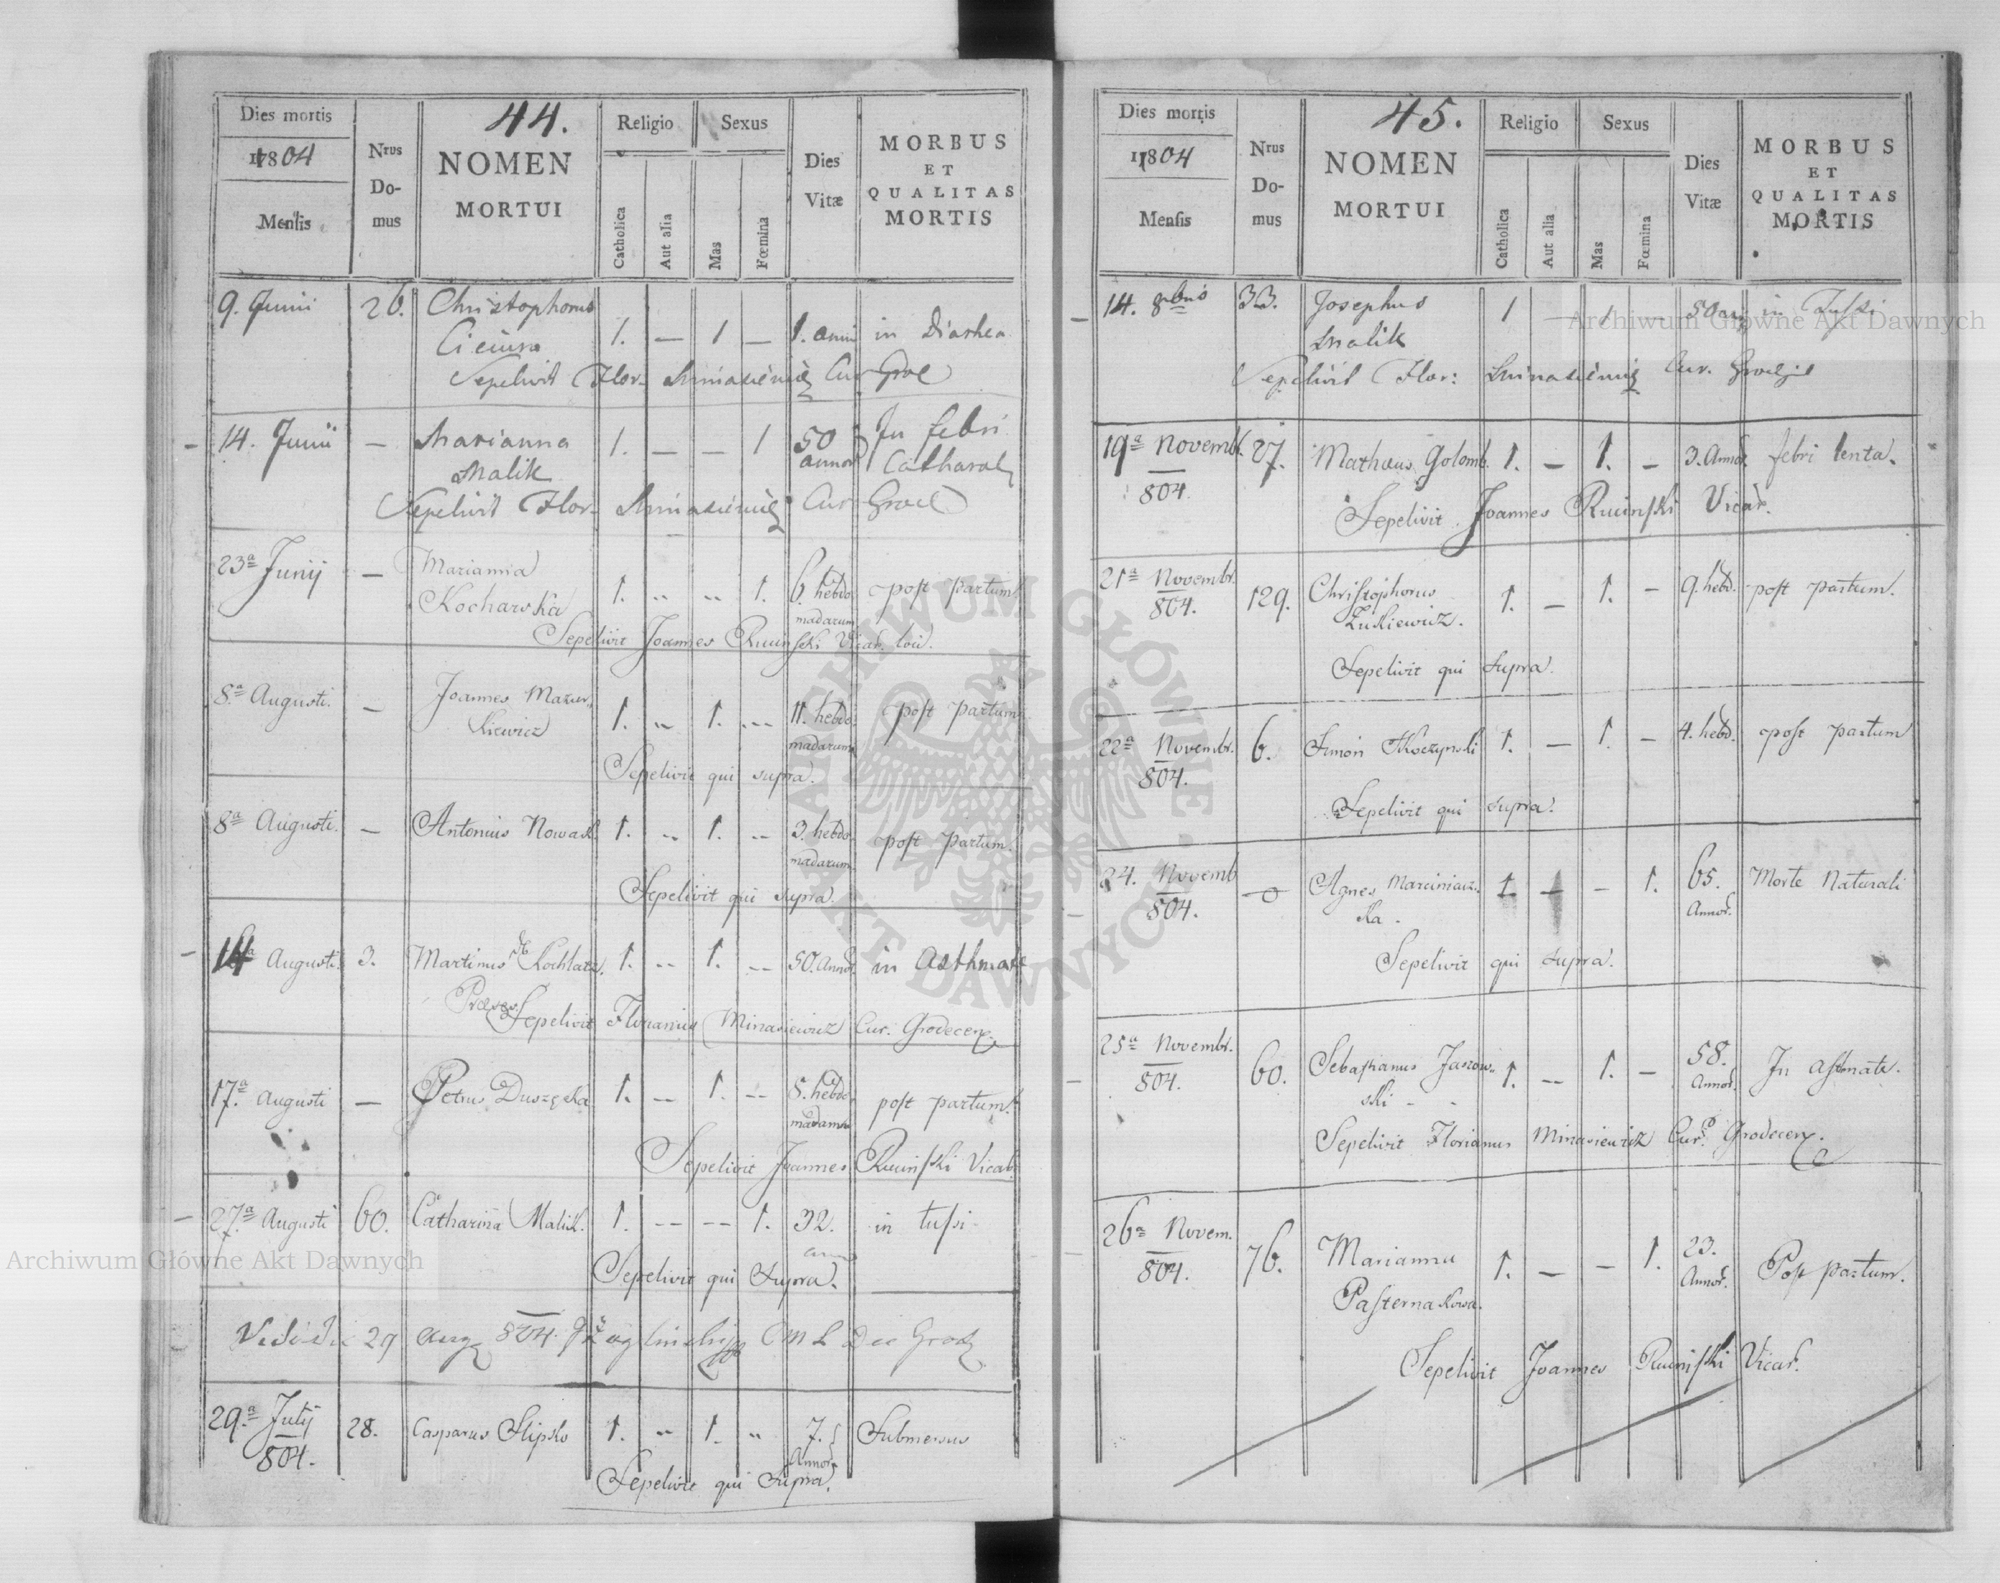 Dies mortis
1804
Mensis
Nrus
Do-
mus
44.
NOMEN
MORTUI
Religio
Catholica
Aut alia
Sexus
Mas
Fœmina
Dies
Vitæ
MORBUS
ET
QUALITAS
MORTIS
9. Junii 26. Christophorus 1. — 1 — 1. anni in diarhea
Sepelivit Flor. Minasiewicz Cur
14. Junii — Marianna 1. — — 1 50 In febri
Malik annor Catharal
Sepelivit Flor. Minasiewicz Cur
23a Junij — Marianna 1. .. .. 1. 6. hebdo post partum.
Kocharska madarum
Sepelivit Joannes Rucinski Vicar. loci.
8a Augusti. — Joannes Mazur 1. .. 1. ... 11. hebdo post partum.
kiewicz madarum
Sepelivit qui supra.
8a Augusti. — Antonius Nowak. 1. .. 1. .. 3. hebdo post partum.
madarum
Sepelivit qui supra.
14 Augusti. 3. Martinus 1. .. 1. .. 50. Annor. in Asthmate
Sepelivit Florianus Minasiewicz Cur. Grodecens.
17.a Augusti — Petrus Duszęcka 1. .. 1. .. 5. hebdo post partum.
Sepelivit Joannes Rucinski Vicar.
27.a Augusti 60. Catharina Malik. 1. -- -- 1. 32. in tussi
Sepelivit qui Supra.
29 Aug 804.
29.a Julij 28. Casparus Slipko 1. .. 1. .. 7. Submersus
804. Annor.
Sepelivit qui Supra.
Dies mortis
1804
Mensis
Nrus
Do-
mus
45.
NOMEN
MORTUI
Religio
Catholica
Aut alia
Sexus
Mas
Fœmina
Dies
Vitæ
MORBUS
ET
QUALITAS
MORTIS
14. 8bris 33. Josephus 1 — 1 — 50 an in Tussi
Malik
Sepelivit Flor: Minasiewicz Cur.
19a Novemb. 27. Mathæus Golomb. 1. — 1. — 3. Annor. febri lenta.
804.
Sepelivit Joannes Rucinski Vicar.
21a Novembr. 129. Christophorus 1. — 1. — 9. hebd. post partum.
804. Zukiewicz.
Sepelivit qui supra.
22a Novembr. 6. Simon Tkoczynski 1. — 1. — 4. hebd. post partum
804.
Sepelivit qui supra.
24. Novemb —o Agnes Marciniacz 1. — — 1. 65. Morte Naturali
804. ka. Annor.
Sepelivit qui supra.
25a Novembr. 60. Sebastianus Jaszow 1. — 1. — 58. In Astmate.
804. ski - - Annor.
Sepelivit Florianus Minasiewicz Cur. Grodecens.
26a Novem. 76. Marianna 1. — — 1. 23. Post partum.
804. Pasternakowa. Annor.
Sepelivit Joannes Rucinski Vicar.
Archiwum Główne Akt Dawnych
Archiwum Główne Akt Dawnych
ARCHIWUM GŁÓWNE · AKT DAWNYCH